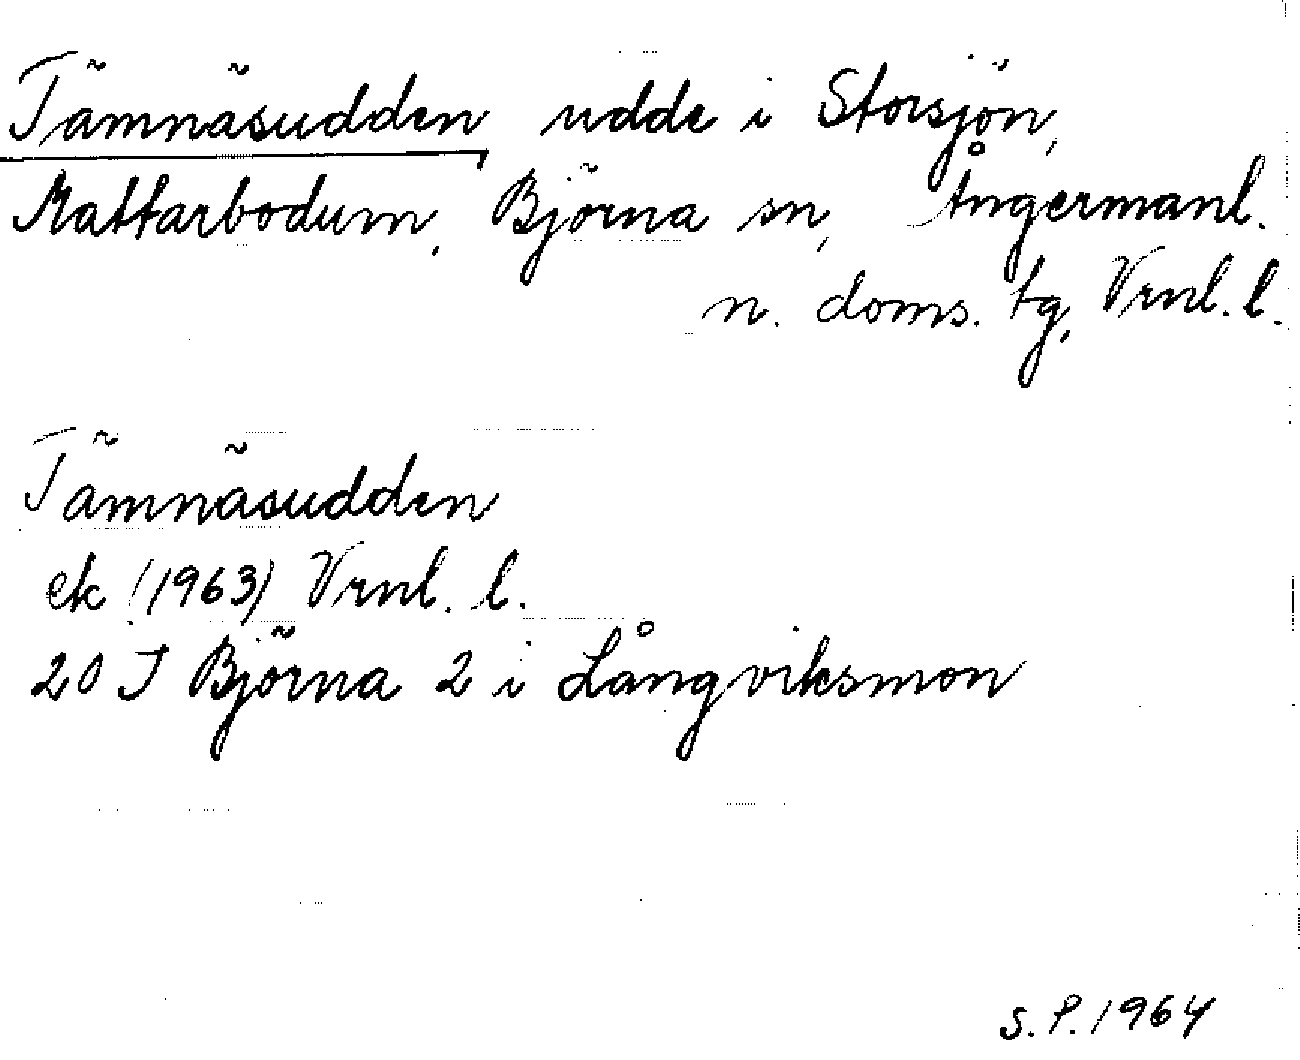 Tämnäsudden, udde i Storsjön,
Mattarbodum, Björna sn, Ångermanl.
n. doms. tg, Vrnl. l.
Tämnäsudden
ek (1963) Vrnl. l.
20 J Björna 2 i Långviksmon
S.P. 1964